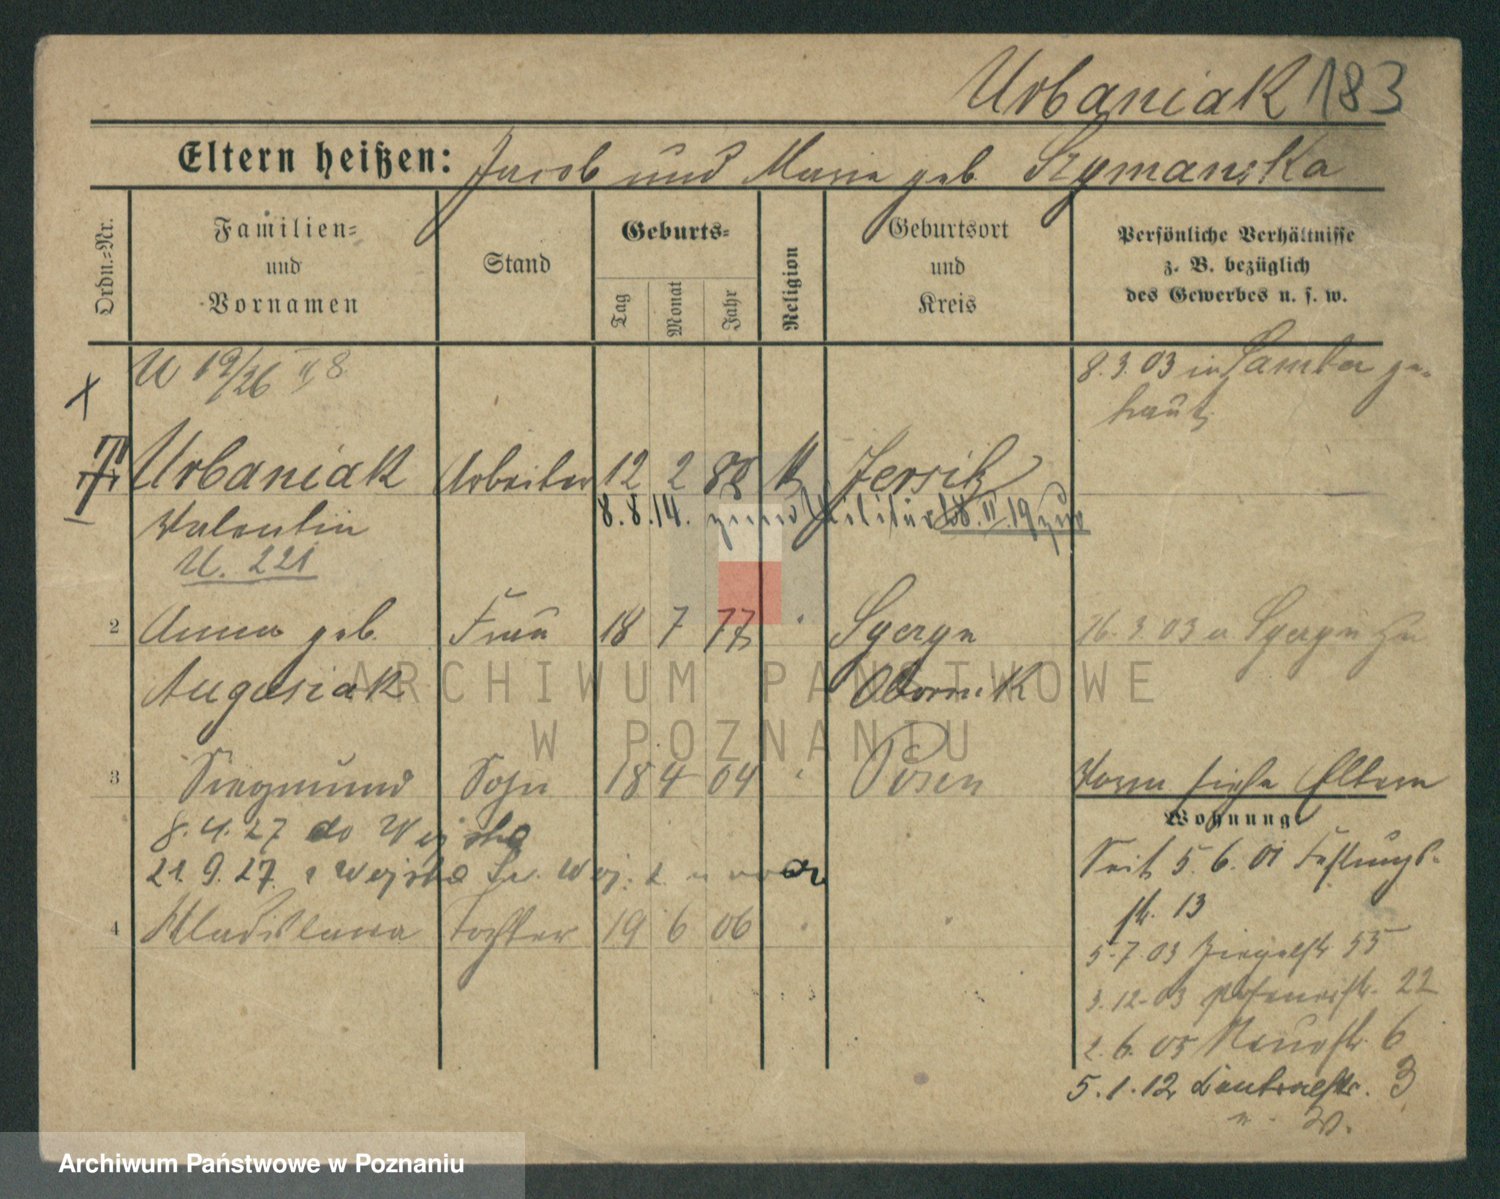 Urbaniak 183
Eltern heißen: Jacob und Marie geb. Szymanska
Ordn.-Nr.
Familien-
und
Vornamen
Stand
Geburts-
Tag
Monat
Jahr
Religion
Geburtsort
und
Kreis
Persönliche Verhältnisse
z. B. bezüglich
des Gewerbes u. s. w.
8.3.03 in Samter ge-
traut
Urbaniak Arbeiter 12 2 K Jersitz
8.8.14. zum Militär 18.II.19 zur
Valentin
U. 221
2 Anna geb. Frau 18 7 77 16.3.03 zu
Augusiak Obornik
3 Siegmund Sohn 18 4 04 Posen
Vorm siehe Eltern
Wohnung
8.4.27 do Wojska
21.9.27 z Wojska
Seit 5.6.01 Festungs-
str. 13
4 Wladislawa Tochter 19 6 06
5.7.03 Ziegelstr 55
3.12.03 Posenerstr. 22
2.6.05 Neuestr. 6
5.1.12 Centralstr. 3
ARCHIWUM PAŃSTWOWE
W POZNANIU
Archiwum Państwowe w Poznaniu